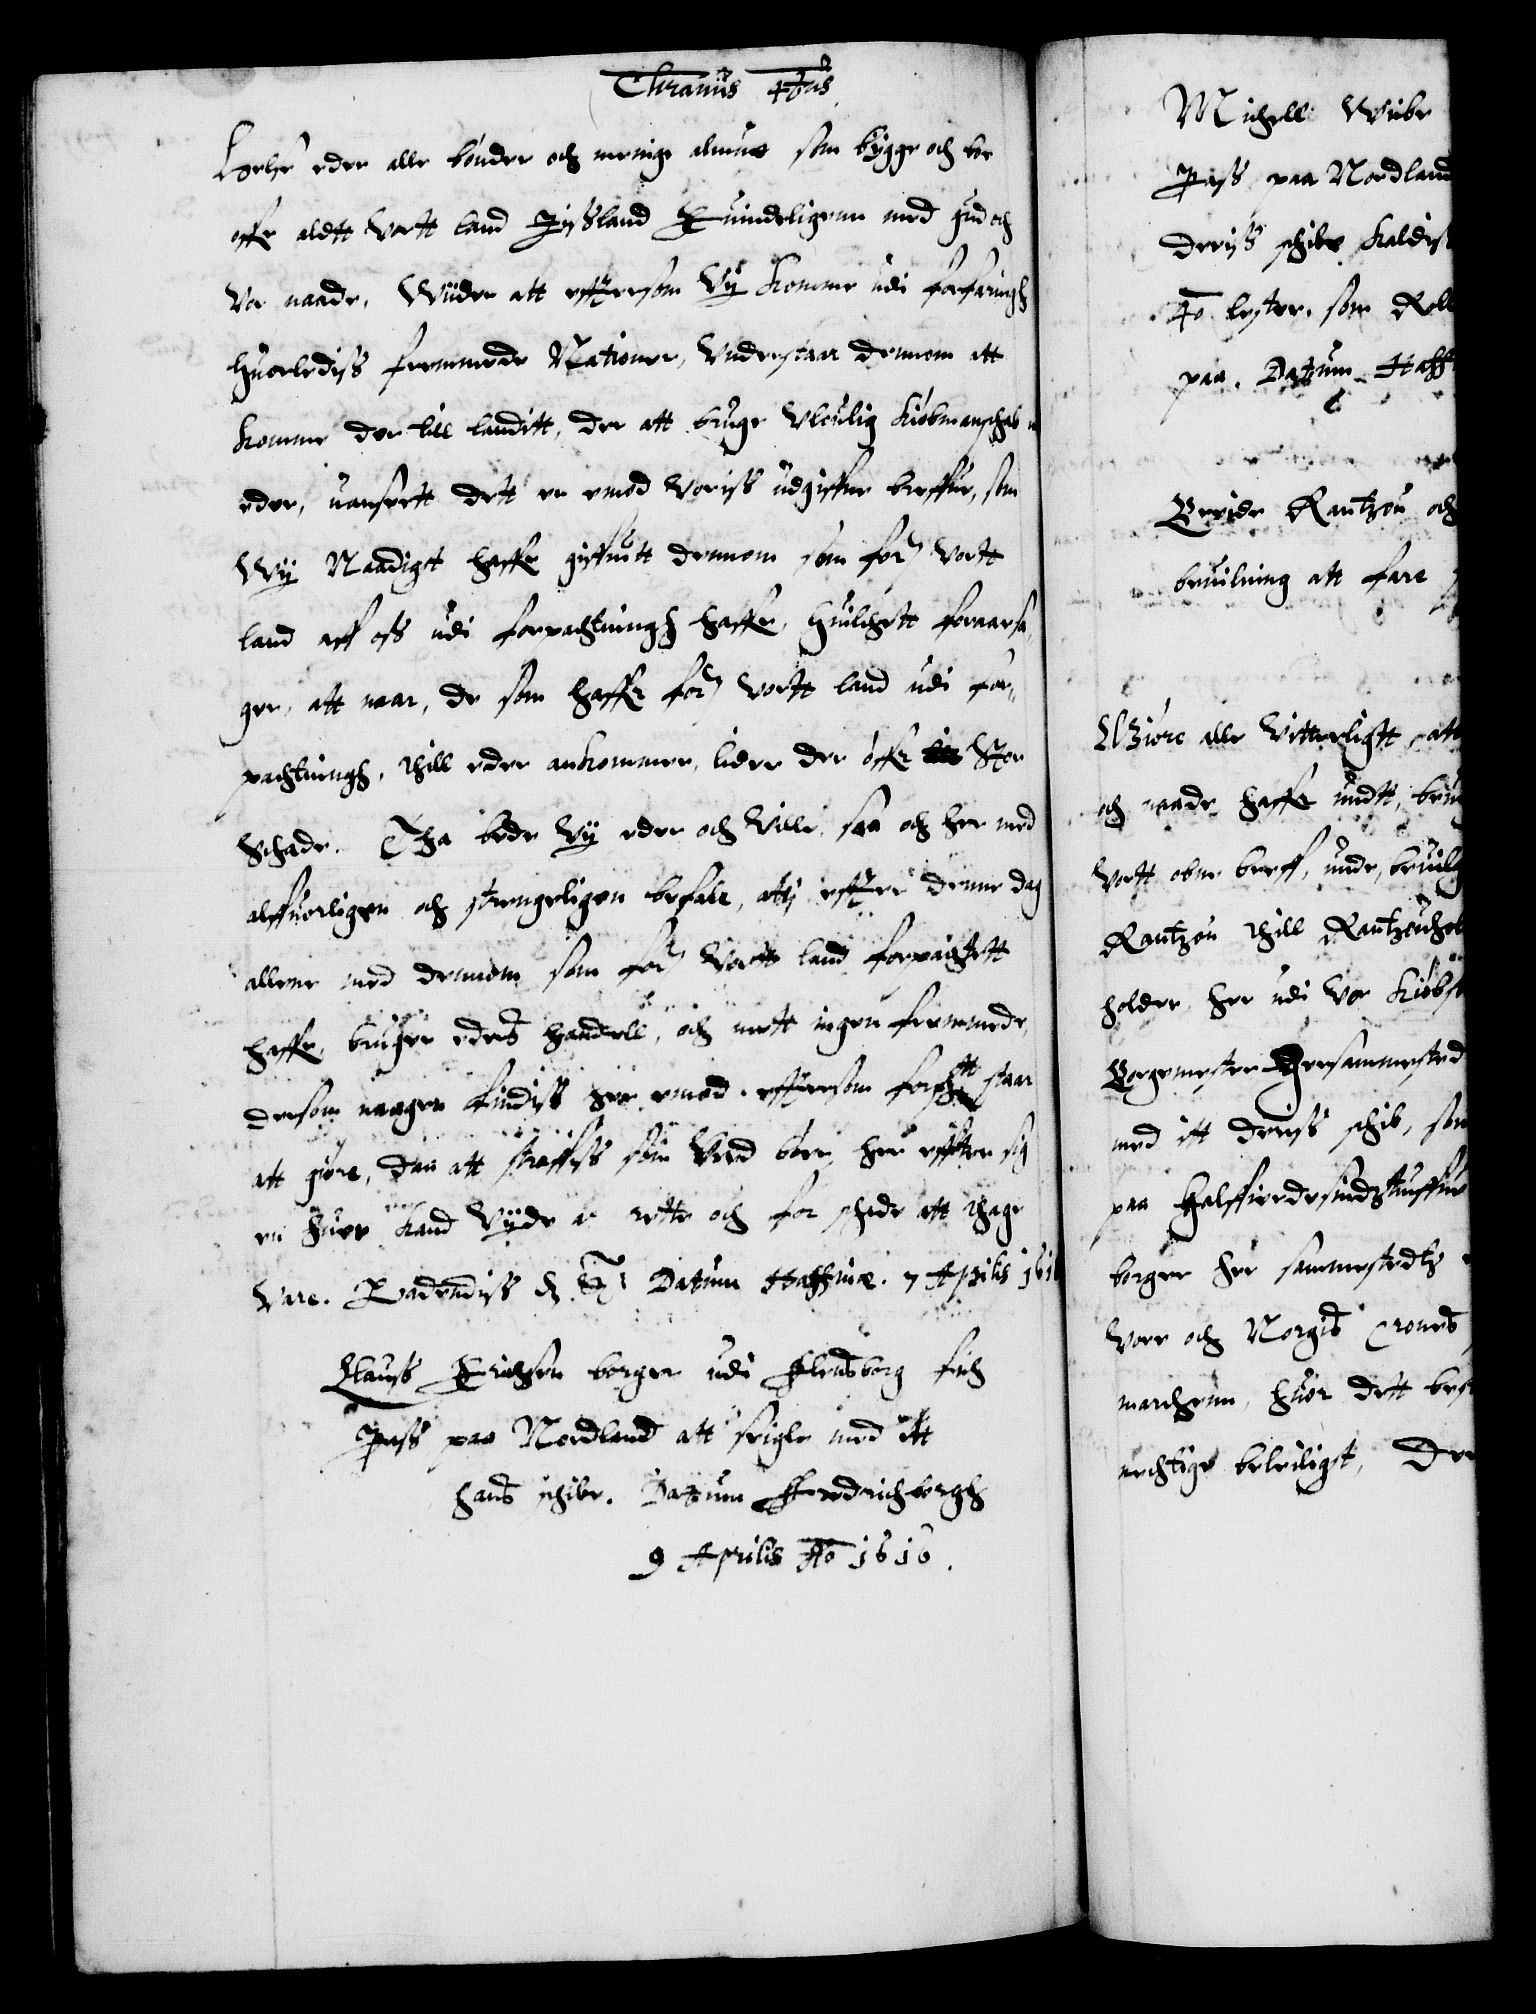 Christianus 4tus
Helse eder alle bønder och menige almue som bygge och boe
offr aldtt Vortt land Iissland Kuindeligenn med gud och
Vor naade, Wiider att effttersom Vij Komme udi forfaringh
huorlediss fremmede Nationer, Understaar dennom att
Komme der till landitt, der att bruge Ulouligh Kiøbmanschab
eder, uanseett dett er emod Voriss udgiffne breffue, som
Wij Naadigst haffr giffuitt dennom som ford Vortt
land aff oss udi forpachtningh haffr, huilchett foraarsa,
ger, att naar, de som haffr ford Vortt land udi for,
pachtningh, thill eder ankommer, lider der offr Stor
Schade. Tha bede Vij eder och Ville, saa och her med
alffuorligen och strengeligen befale, att i effter denne dag
allene med dennom som ford Vortt land forpachtett
haffr, bruger eders handell, och mett ingen fremmede,
dersom naagen findiss her emod, effttersom forschtt staar
att giøre, Daa att straffess som Ved bør, her effter sig
en huer Kand Vide at rette och for schade att thage
Vare. Ladendiss Datum Haffniæ. 7 Aprilis 1616
Clauss Erichsen borger udi Flensborg fich
Pass paa Nordland att seigle med itt
hans schibe. Datum Frederichborgh
9 Aprilis Ao 1616.
Michell Wibe
Pass paa Nordland
deriss schibe Kaldis
40 lester, som
paa. Datum Haff
Breide Rantzou och
beuilning att fare
Giøre alle Vitterligtt att
och naade haffr undtt, beui
Vortt obne breff, unde, beuilg
Rantzou thill Rantzouhol
holder, her udi Vor Kiøbst
Borgemester Hersammested
med itt deriss schib, som
paa Halffierdesindztiuffue
borger her sammestedtz
Vore och Norgis Crones
marchenn, huor dett bes
mechtige beleiligst, Der